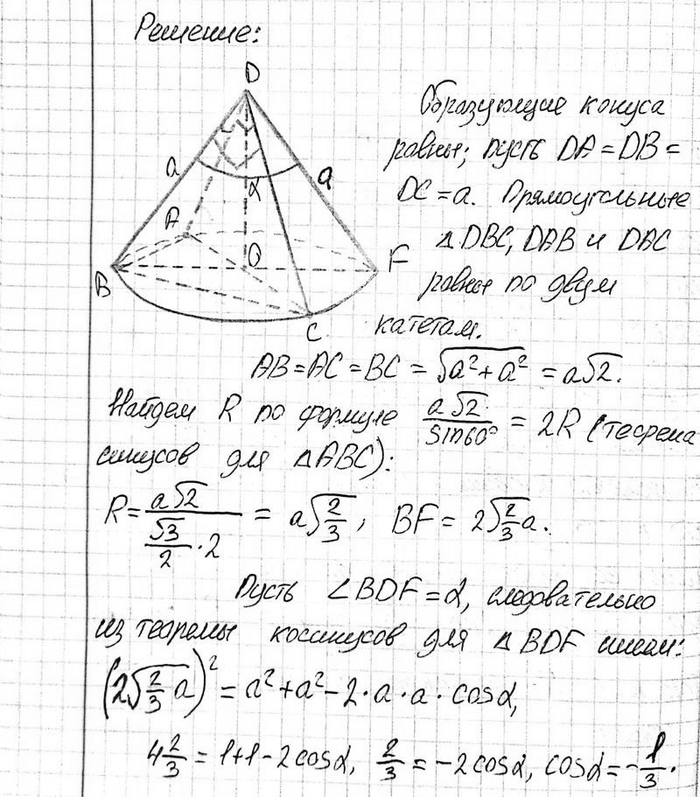 Решение:
D
Образующие конуса
равны; пусть DA = DB =
DC = a. Прямоугольные
△DBC, DAB и DAC
равны по двум
катетам.
a
α
a
A
B
O
F
C
AB = AC = BC = √(a²+a²) = a√2.
Найдем R по формуле a√2/sin60° = 2R (теорема
синусов для △ABC):
R = a√2/(√3/2 · 2) = a√(2/3), BF = 2√(2/3)a.
Пусть ∠BDF = α, следовательно
из теоремы косинусов для △BDF имеем:
(2√(2/3)a)² = a² + a² − 2·a·a·cosα,
4 2/3 = 1+1−2cosα, 2/3 = −2cosα, cosα = −1/3.